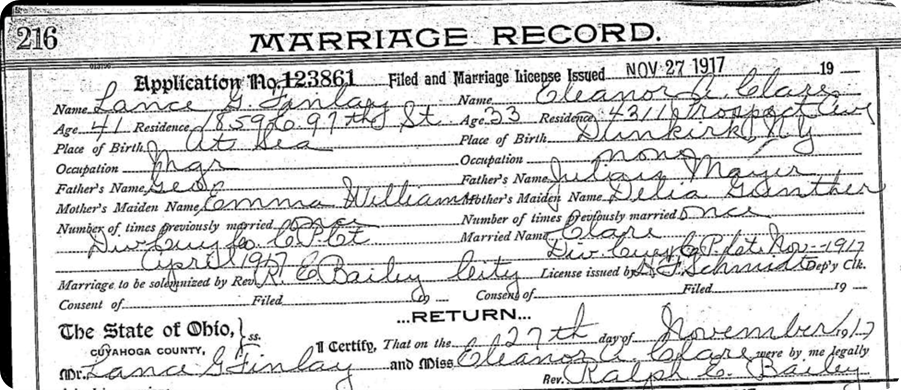 216 MARRIAGE RECORD.
Application No. 123861 Filed and Marriage License Issued NOV 27 1917 19
Name Lance G. Finlay Name Eleanor A. Clare
Age 41 Residence 1859 E. 97th St. Age 33 Residence 4311 Prospect Ave
Place of Birth At Sea Place of Birth Dunkirk, N.Y
Occupation Mgr Occupation none
Father's Name Geo Father's Name Julius Mayer
Mother's Maiden Name Emma Williams Mother's Maiden Name Delia Guenther
Number of times previously married once Number of times previously married once
Div Cuy Co. C.P. Ct Married Name Clare
April 1917 Div. Cuy Co C.P. Nov - 1917
Marriage to be solemnized by Rev. R. E. Bailey City License issued by Schmidt Dep'y Clk.
Consent of Filed 19 Consent of Filed 19
...RETURN...
The State of Ohio, } ss.
CUYAHOGA COUNTY, I Certify, That on the 27th day of November 1917
Mr. Lance G Finlay and Miss Eleanor A. Clare were by me legally
Rev. Ralph E. Bailey